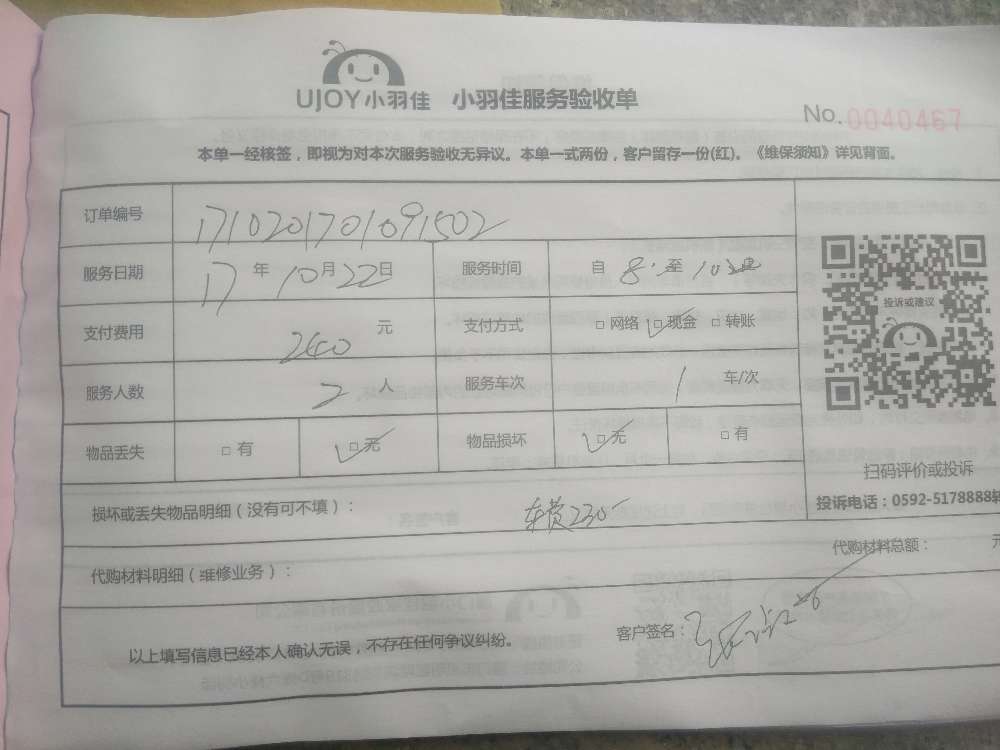 UJOY小羽佳 小羽佳服务验收单
No.0040467
本单一经核签，即视为对本次服务验收无异议。本单一式两份，客户留存一份(红)。《维保须知》详见背面。
订单编号 1710201701091502
服务日期 17年10月22日 服务时间 自 8: 至 10
支付费用 240元 支付方式 □网络 ☑现金 □转账
服务人数 2人 服务车次 1 车/次
物品丢失 □有 ☑无 物品损坏 ☑无 □有
投诉或建议
扫码评价或投诉
投诉电话：0592-5178888转
损坏或丢失物品明细（没有可不填）： 车费230
代购材料明细（维修业务）： 代购材料总额： 元
以上填写信息已经本人确认无误，不存在任何争议纠纷。 客户签名：